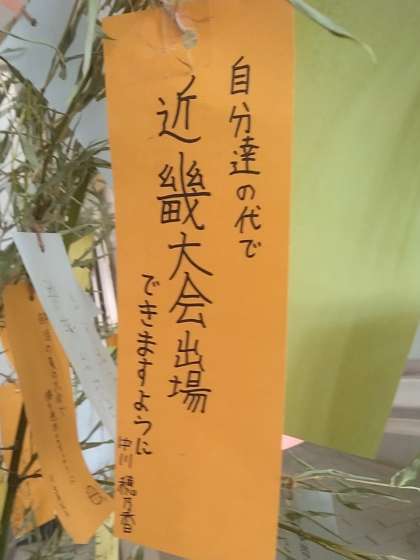 自分達の代で
近畿大会出場
できますように
中川 穂乃香